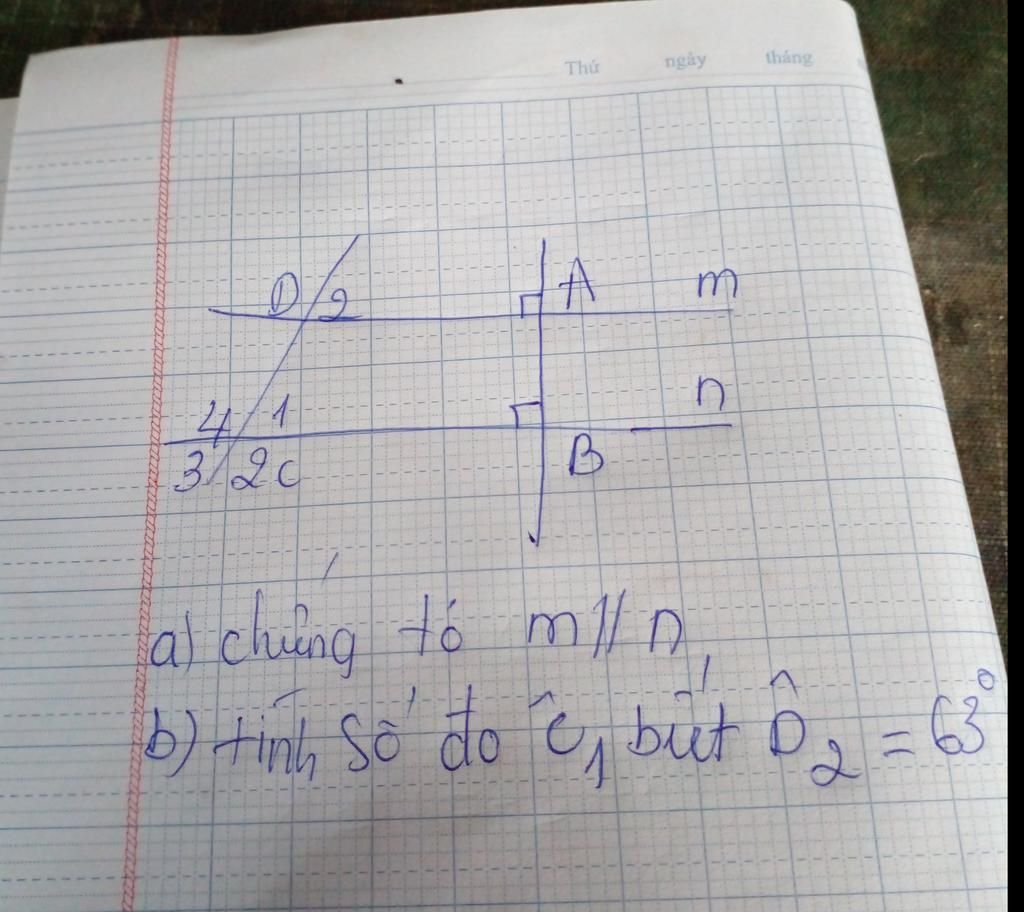 Thứ ngày tháng
D 2 A m
4 1 n
3 2 C B
a) chứng tỏ m // n
b) tính số đo Ĉ₁ biết D̂₂ = 63°